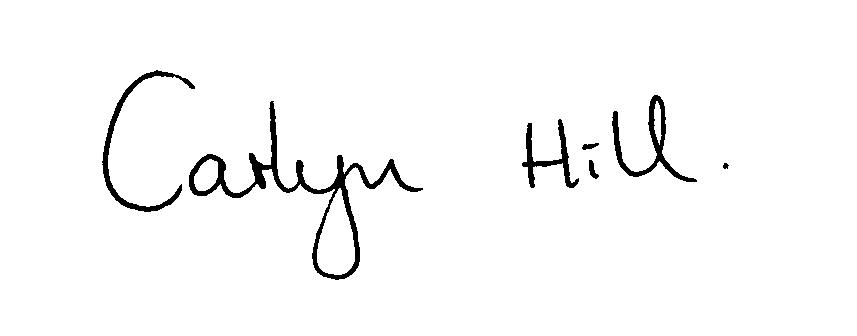 Carlyn Hill.